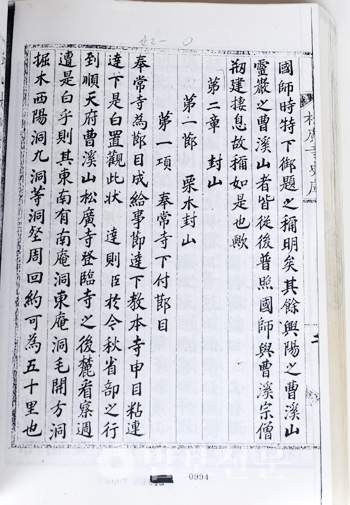 松廣寺史庫
國師時特下御題之稱明矣其餘興陽之曹溪山
靈巖之曹溪山者皆從後普照國師與曹溪宗僧
剏建捿息故稱如是也歟
第二章 封山
第一節 栗木封山
第一項 奉常寺下付節目
奉常寺為節目成給事節達下教本寺申目粘連
達下是白置觀此狀 達則臣於今秋省部之行
到順天府曹溪山松廣寺登臨寺之後麓看察週
遭是白乎則其東南有南庵洞東庵洞毛開方洞
掘木西陽洞九洞等洞壑周回約可為五十里也
0994